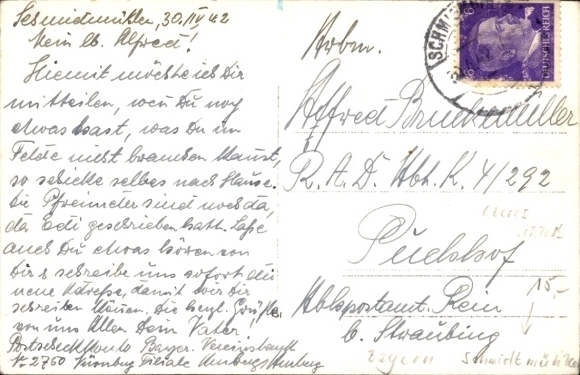 Schmidmühlen, 30.III 42
Mein lb. Alfred!
Hiemit möchte ich Dir
mitteilen, wen Du noch
etwas hast, was Du im
Felde nicht brauchen kannst,
so schicke selbes nach Hause.
Die sind noch da,
da Edi geschrieben hatt. Laße
auch Du etwas hören von
Dir & schreibe uns sofort die
neue Adresse, damit wir Dir
schreiben können. Die herzl. Grüße
von uns Allen Dein Vater
Postscheckkonto Bayer. Vereinsbank
2760 Nürnberg Filiale Amberg
Arbm.
Alfred
R. A. D. Abt. K. 4/292
Puchhof
Ablspostamt. Rain
b. Straubing
Bayern
15,-
Schmidtmühlen
SCHMIDM
DEUTSCHES REICH
6